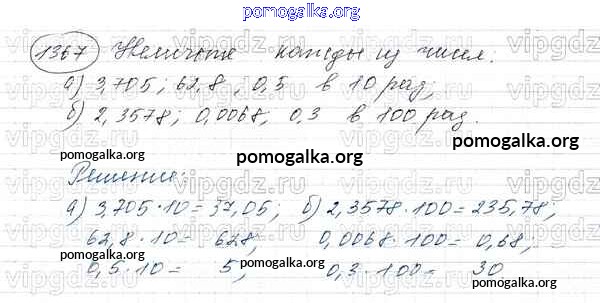 pomogalka.org
1367 Увеличьте каждое из чисел:
а) 3,705; 62,8; 0,5 в 10 раз;
б) 2,3578; 0,0068; 0,3 в 100 раз.
pomogalka.org pomogalka.org pomogalka.org
Решение:
а) 3,705·10=37,05; б) 2,3578·100=235,78;
62,8·10= 628; 0,0068·100= 0,68;
0,5·10= 5; 0,3·100= 30
pomogalka.org pomogalka.org